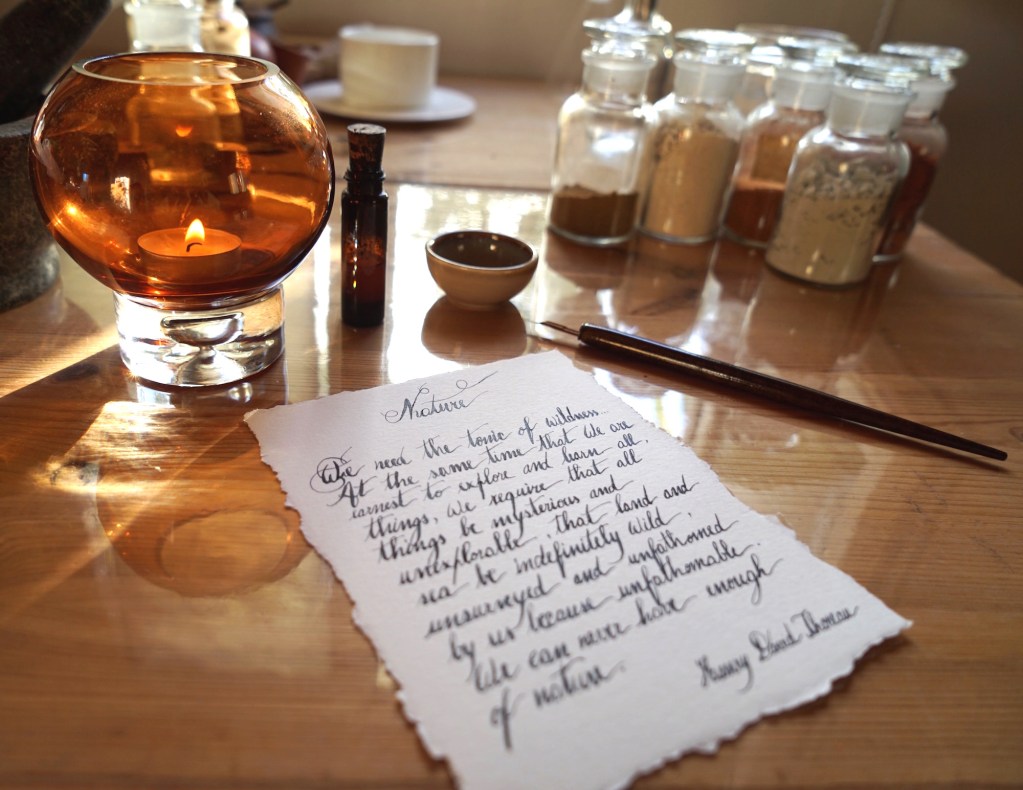 Nature
We need the tonic of wildness...
At the same time that we are
earnest to explore and learn all
things, we require that all
things be mysterious and
unexplorable, that land and
sea be indefinitely wild,
unsurveyed and unfathomed
by us because unfathomable.
We can never have enough
of nature.
Henry David Thoreau